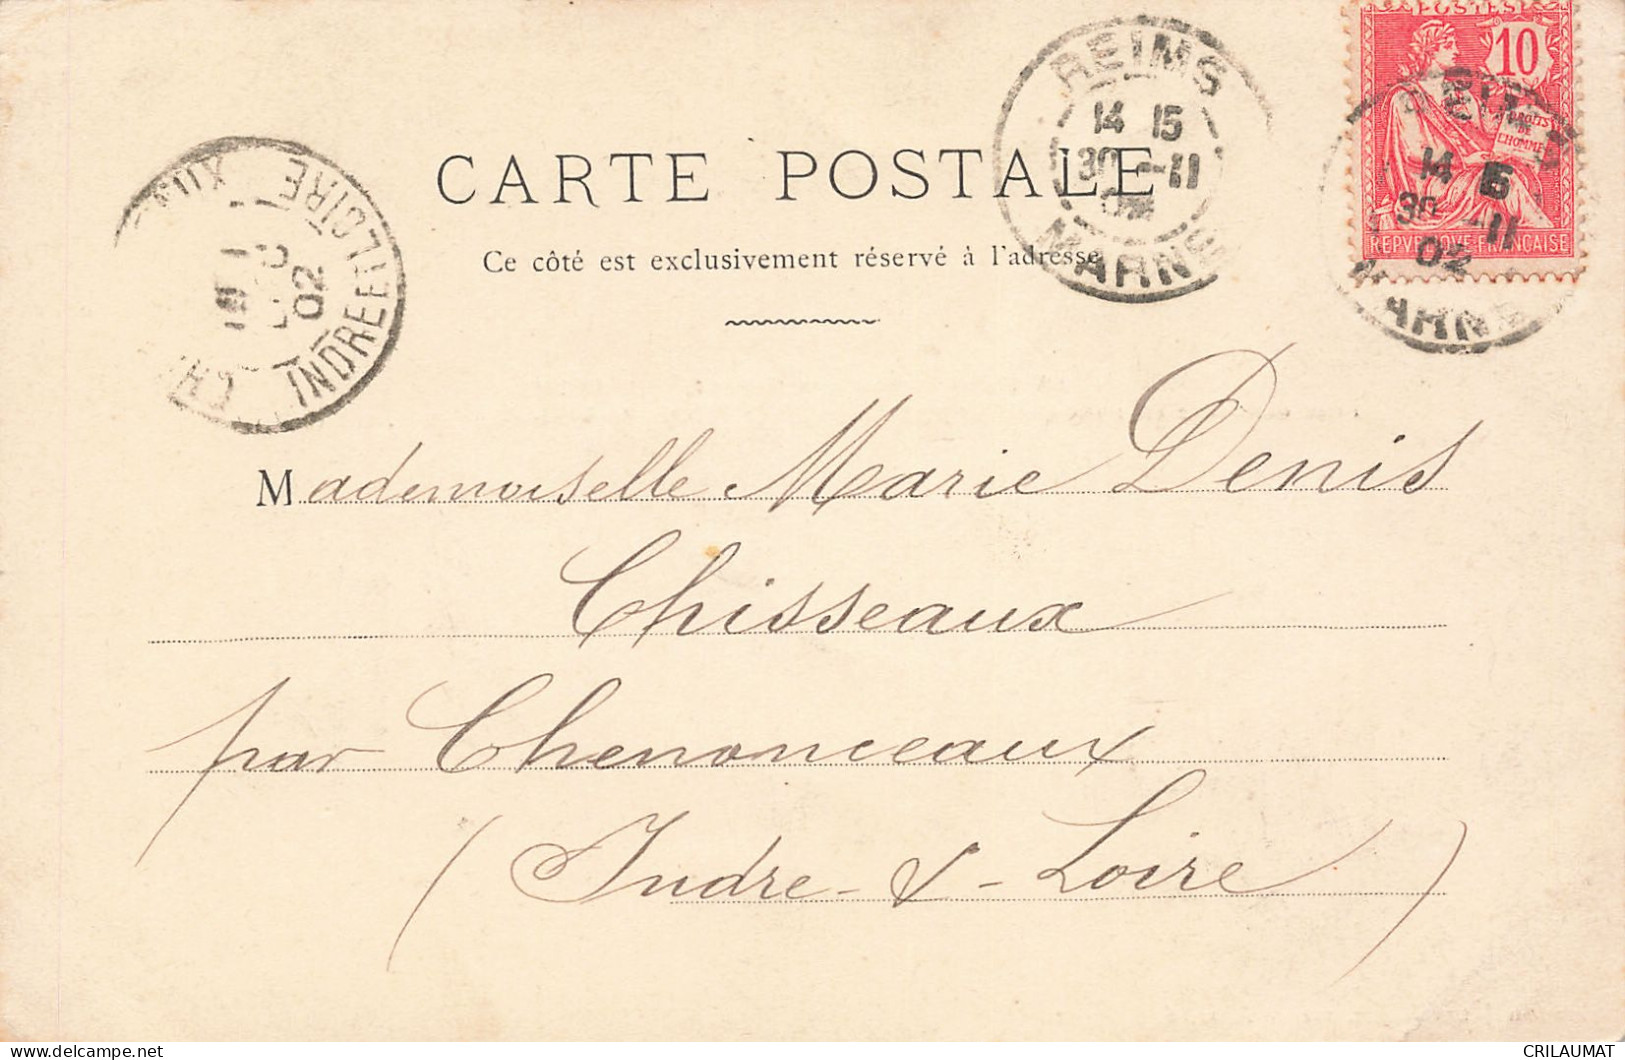 POSTES
10
DROITS
DE
L'HOMME
REPVBLIQVE FRANCAISE
REIMS
14 15
30 -11
02
MARNE
14 15
30 -11
02
MARNE
CARTE POSTALE
Ce côté est exclusivement réservé à l'adresse
INDRE ET LOIRE
02
Mademoiselle Marie Denis
Chisseaux
par Chenonceaux
(Indre-&-Loire)
delcampe.net
CRILAUMAT